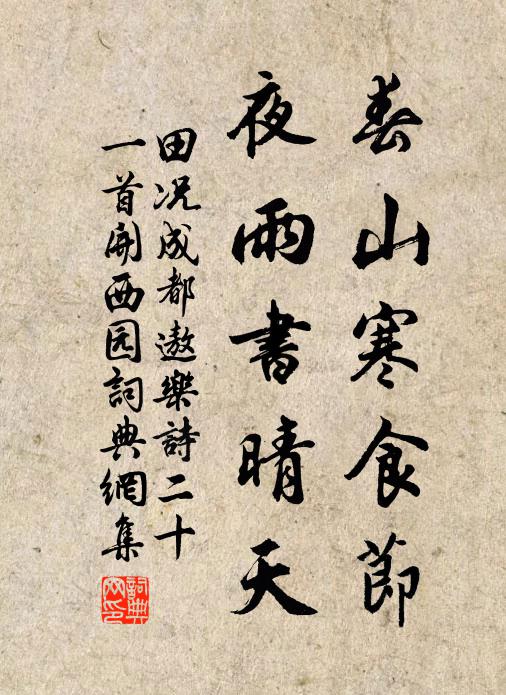 春山寒食節
夜雨書晴天
田况成都遨樂詩二十
一首開西园詞典網集
詞典網印